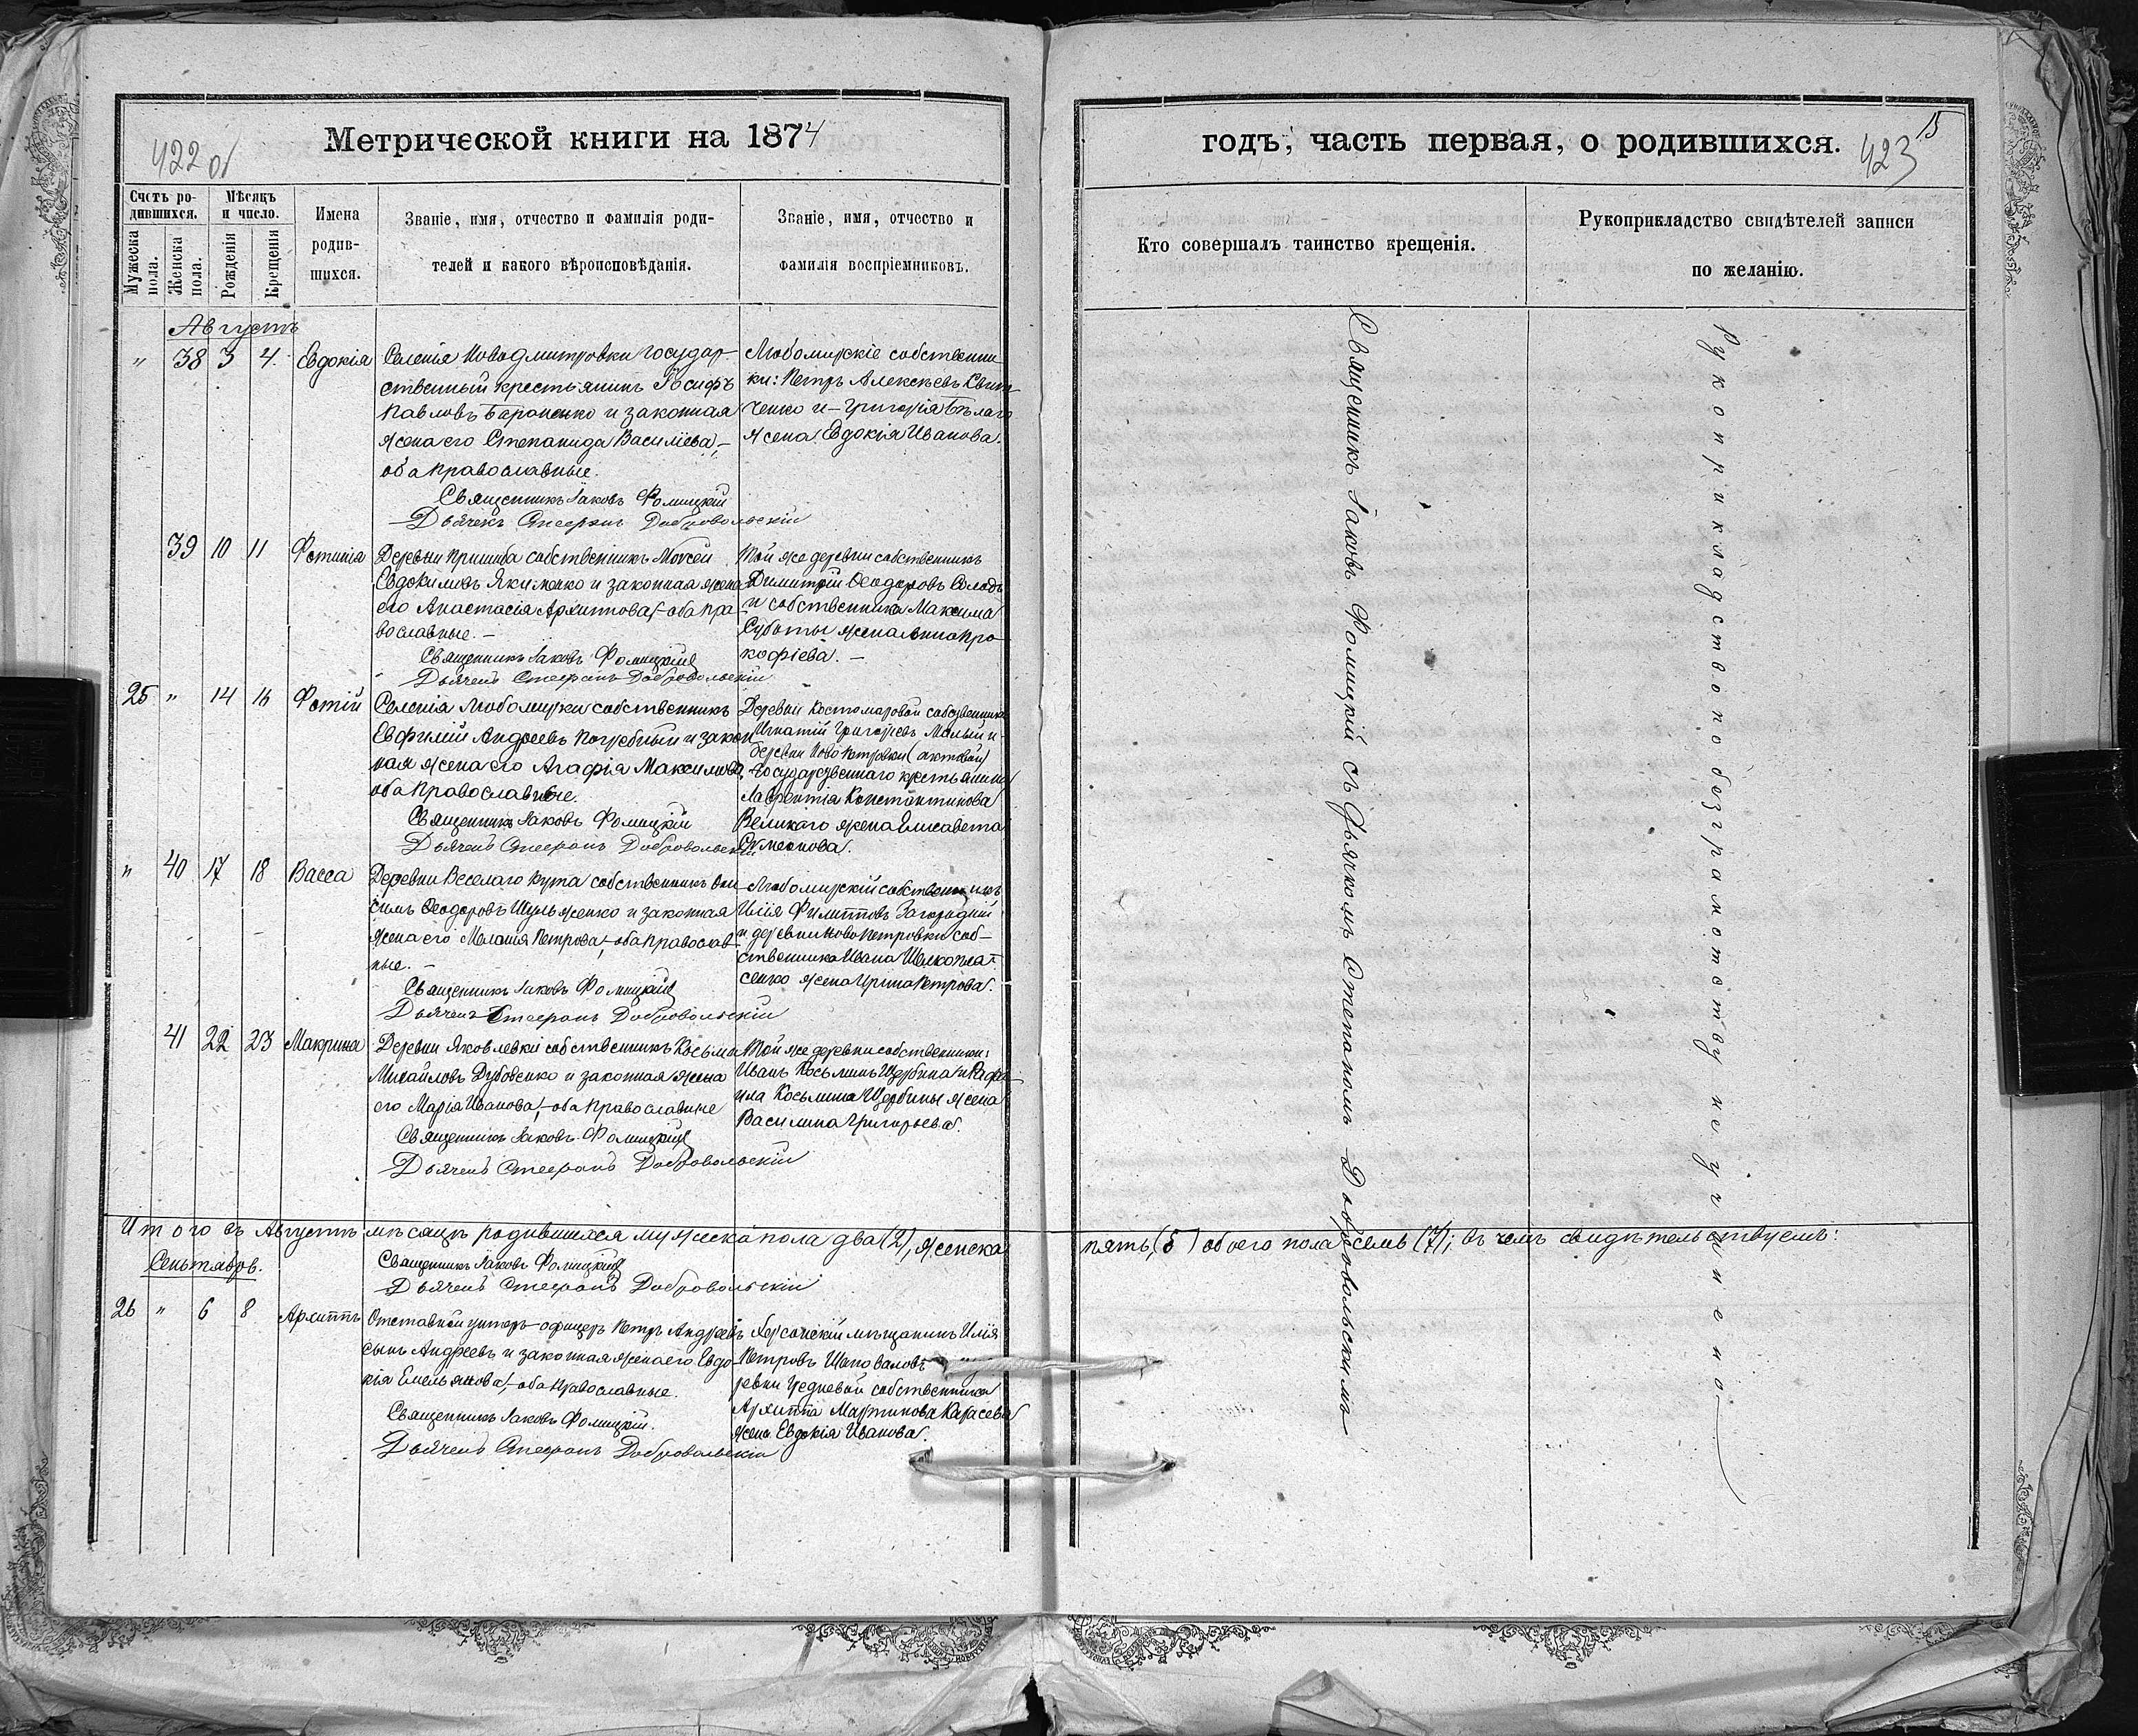 Метрической книги на 1874
422 об
Счетъ ро-
дившихся.
Мужеска
пола.
Женска
пола.
Мѣсяцъ
и число.
Рожденія
Крещенія
Имена
родив-
шихся.
Званіе, имя, отчество и фамилія роди-
телей и какого вѣроисповѣданія.
Званіе, имя, отчество и
фамилія воспріемниковъ.
Августъ
" 38 3 4. Евдокія
Селенія Новодмитровки государ-
ственный крестьянинъ Іосифъ
Павловъ и законная
жена его Степанида Василіева,-
оба православные.
Священникъ Іаковъ Фомицкій
Дьячекъ Стефанъ Добровольскій
Любомирскіе собственни
ки: Петръ Алексѣевъ
ченко и Григорія Бѣлаго
жена Евдокія Иванова.
39 10 11 Фотинія
Деревни Пришиба собственникъ Моѵсей
Евдокимовъ Якименко и законная жена
его Анастасія Архипова,- оба пра
вославные.-
Священникъ Іаковъ Фомицкій
Дьячекъ Стефанъ Добровольскій
Той же деревни собственникъ
Димитрій Ѳеодоровъ
и собственника Максима
Суботы жена Анна Про
кофіева.-
25 " 14 16 Фотій
Селенія Любомирки собственникъ
Евфимій Андреевъ Погребный и закон
ная жена его Агафія Максимова,
оба православные.
Священникъ Іаковъ Фомицкій
Дьячекъ Стефанъ Добровольскій
Деревни Костомаровой собственникъ
Игнатій Григорьевъ Малый и
деревни Новопетровки
государственнаго крестьянина
Лаврентія Константинова
Великаго жена Елисавета
Симеонова.
" 40 17 18 Васса
Деревни Веселаго Кута собственникъ Они
симъ Ѳеодоровъ Шульженко и законная
жена его Меланія Петрова,- оба православ-
ные.-
Священникъ Іаковъ Фомицкій
Дьячекъ Стефанъ Добровольскій
Любомирскій собственникъ
Илія Филипповъ Загородній
и деревни Новопетровки соб-
ственника Ивана
сенко жена Ирина Петрова.
41 22 23 Макрина
Деревни Яковлевки собственникъ Косьма
Михайловъ Дубовенко и законная жена
его Марія Иванова,- оба православные
Священникъ Іаковъ Фомицкій
Дьячекъ Стефанъ Добровольскій
Той же деревни собственники:
Иванъ Косьминъ Щербина и
ила Косьмина Щербины жена
Василина Григорьева.
Итого въ Августѣ мѣсяцѣ родившихся мужеска пола два (2), женска
Сентябрь.
Священникъ Іаковъ Фомицкій
Дьячекъ Стефанъ Добровольскій
26 " 6 8 Архиппъ
Отставной унтеръ-офицеръ Петръ Андреевъ
сынъ Андреевъ и законная жена его Евдо
кія Емельянова,- оба православные.
Священникъ Іаковъ Фомицкій.
Дьячекъ Стефанъ Добровольскій
Херсонскій мѣщанинъ Илія
Петровъ Шаповаловъ
ревни собственника
Архиппа Мартинова Карасева
жена Евдокія Иванова.
годъ, часть первая, о родившихся.
15
423
Кто совершалъ таинство крещенія.
Рукоприкладство свидѣтелей записи
по желанію.
Священникъ Іаковъ Фомицкій съ дьячкомъ Степаномъ Добровольскимъ
Рукоприкладство по безграмотству не учинено
пять, (5) обоего пола семь (7); въ чемъ свидѣтельствуемъ: